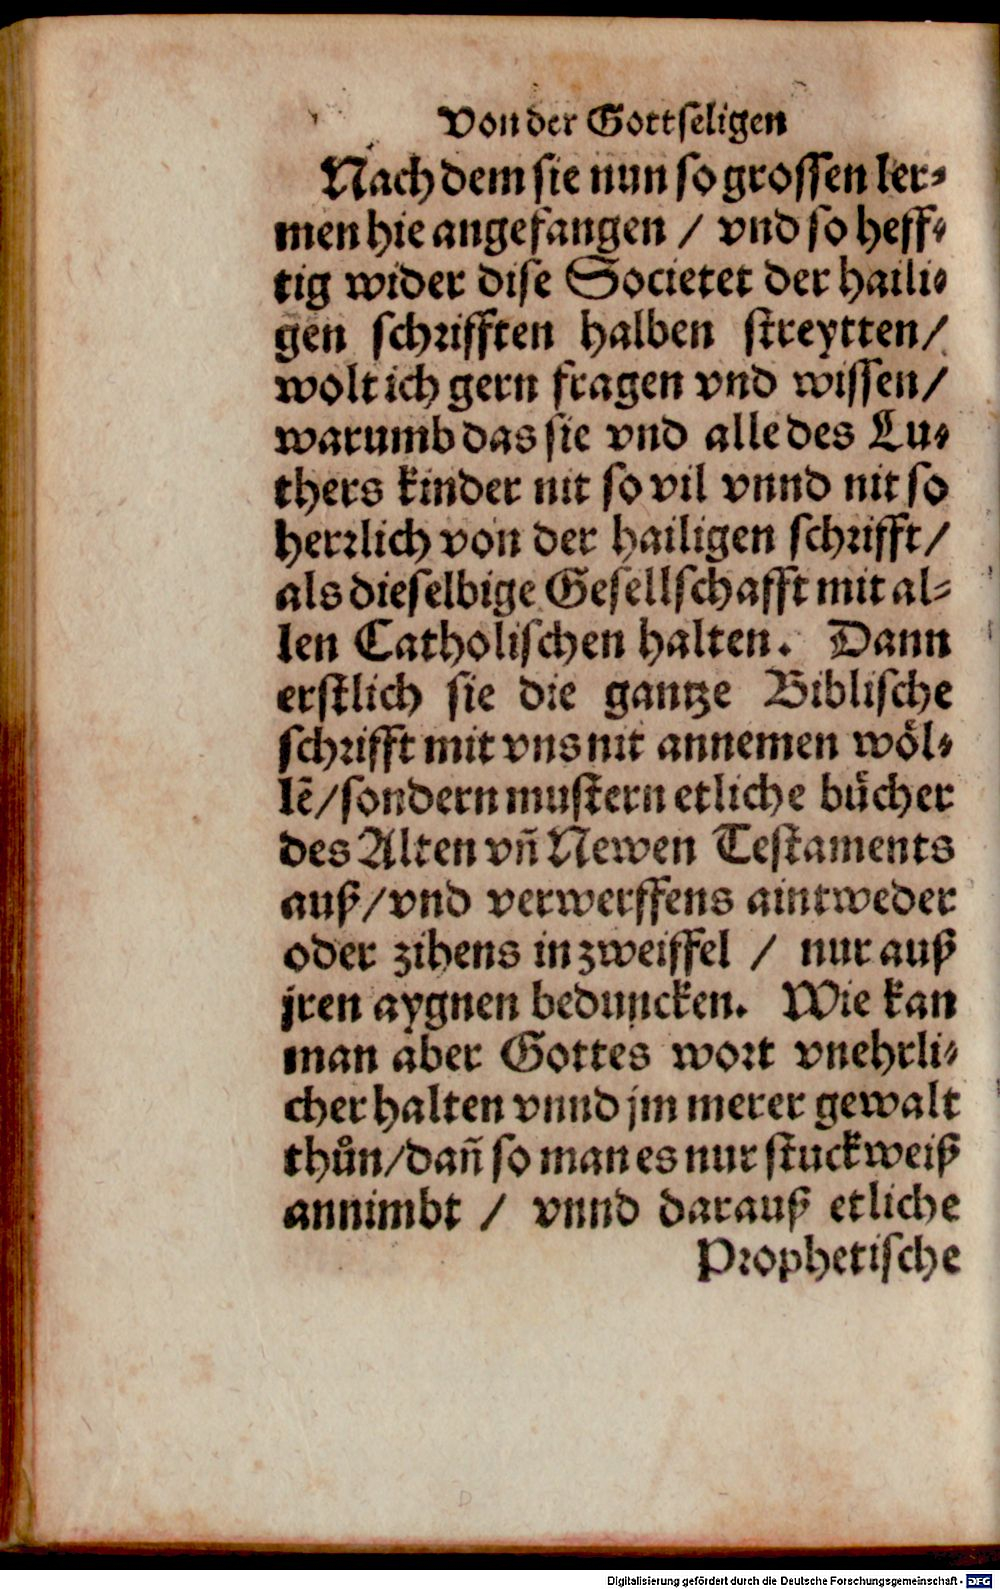 Von der Gottseligen
Nach dem sie nun so grossen ler-
men hie angefangen / vnd so heff-
tig wider dise Societet der haili-
gen schrifften halben streytten/
wolt ich gern fragen vnd wissen/
warumb das sie vnd alle des Lu-
thers kinder nit so vil vnnd nit so
herrlich von der hailigen schrifft/
als dieselbige Gesellschafft mit al-
len Catholischen halten. Dann
erstlich sie die gantze Biblische
schrifft mit vns nit annemen wöl-
lē/sondern mustern etliche bücher
des Alten vñ Newen Testaments
auß/vnd verwerffens aintweder
oder zihens in zweiffel / nur auß
jren aygnen beduncken. Wie kan
man aber Gottes wort vnehrli-
cher halten vnnd jm merer gewalt
thůn/dañ so man es nur stuckweiß
annimbt / vnnd darauß etliche
Prophetische
Digitalisierung gefördert durch die Deutsche Forschungsgemeinschaft - DFG